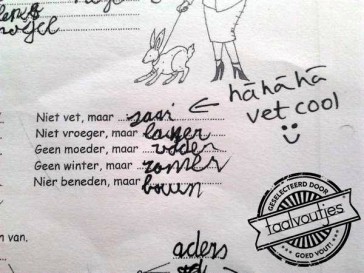 Niet vet, maar saai ← hāhāhā
vet cool
Niet vroeger, maar later
Geen moeder, maar vader
Geen winter, maar zomer
Nier beneden, maar boven
GESELECTEERD DOOR
taalvoutjes
GOED VOUT!
n van.
aders